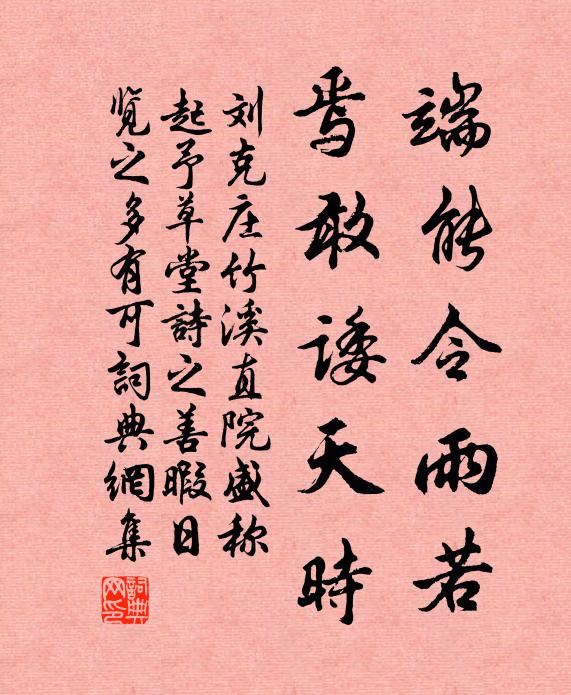 端能令雨若
焉敢諉天時
刘克庄竹溪直院盛称
起予草堂詩之善暇日
覽之多有可詞典網集
詞典網印